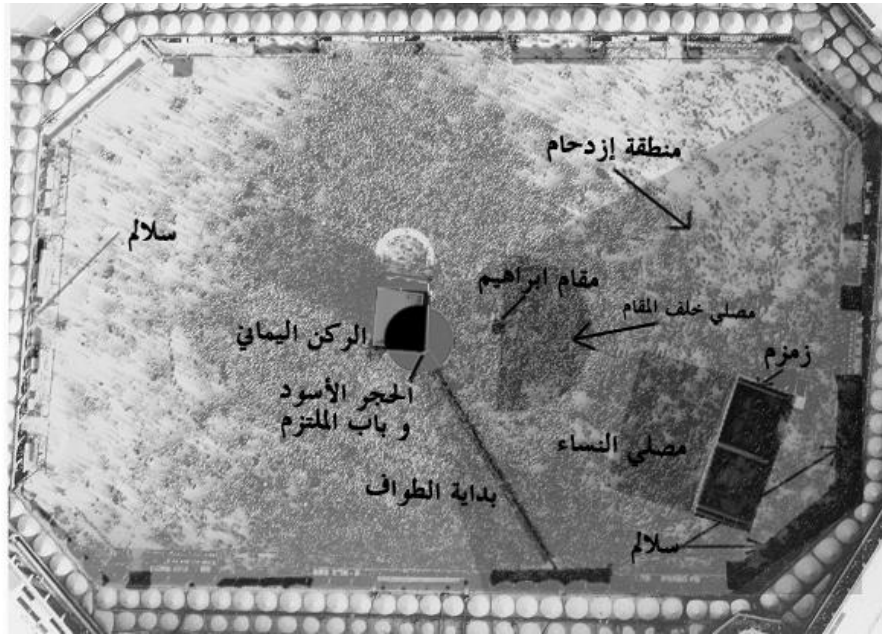 منطقة إزدحام
سلالم
مقام ابراهيم
مصلي خلف المقام
الركن اليماني
زمزم
الحجر الأسود
و باب الملتزم
مصلي النساء
بداية الطواف
سلالم